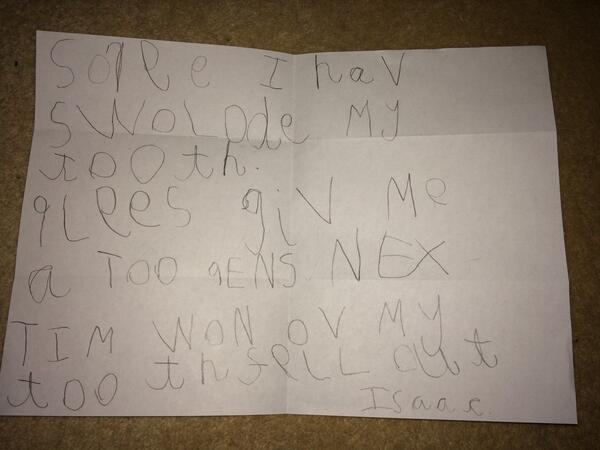 SoRee I haV
SWOLOde MY
tOOth.
qLees giV Me
a TOO qENS NEX
TIM WON OV MY
too th feLL out
Isaac.